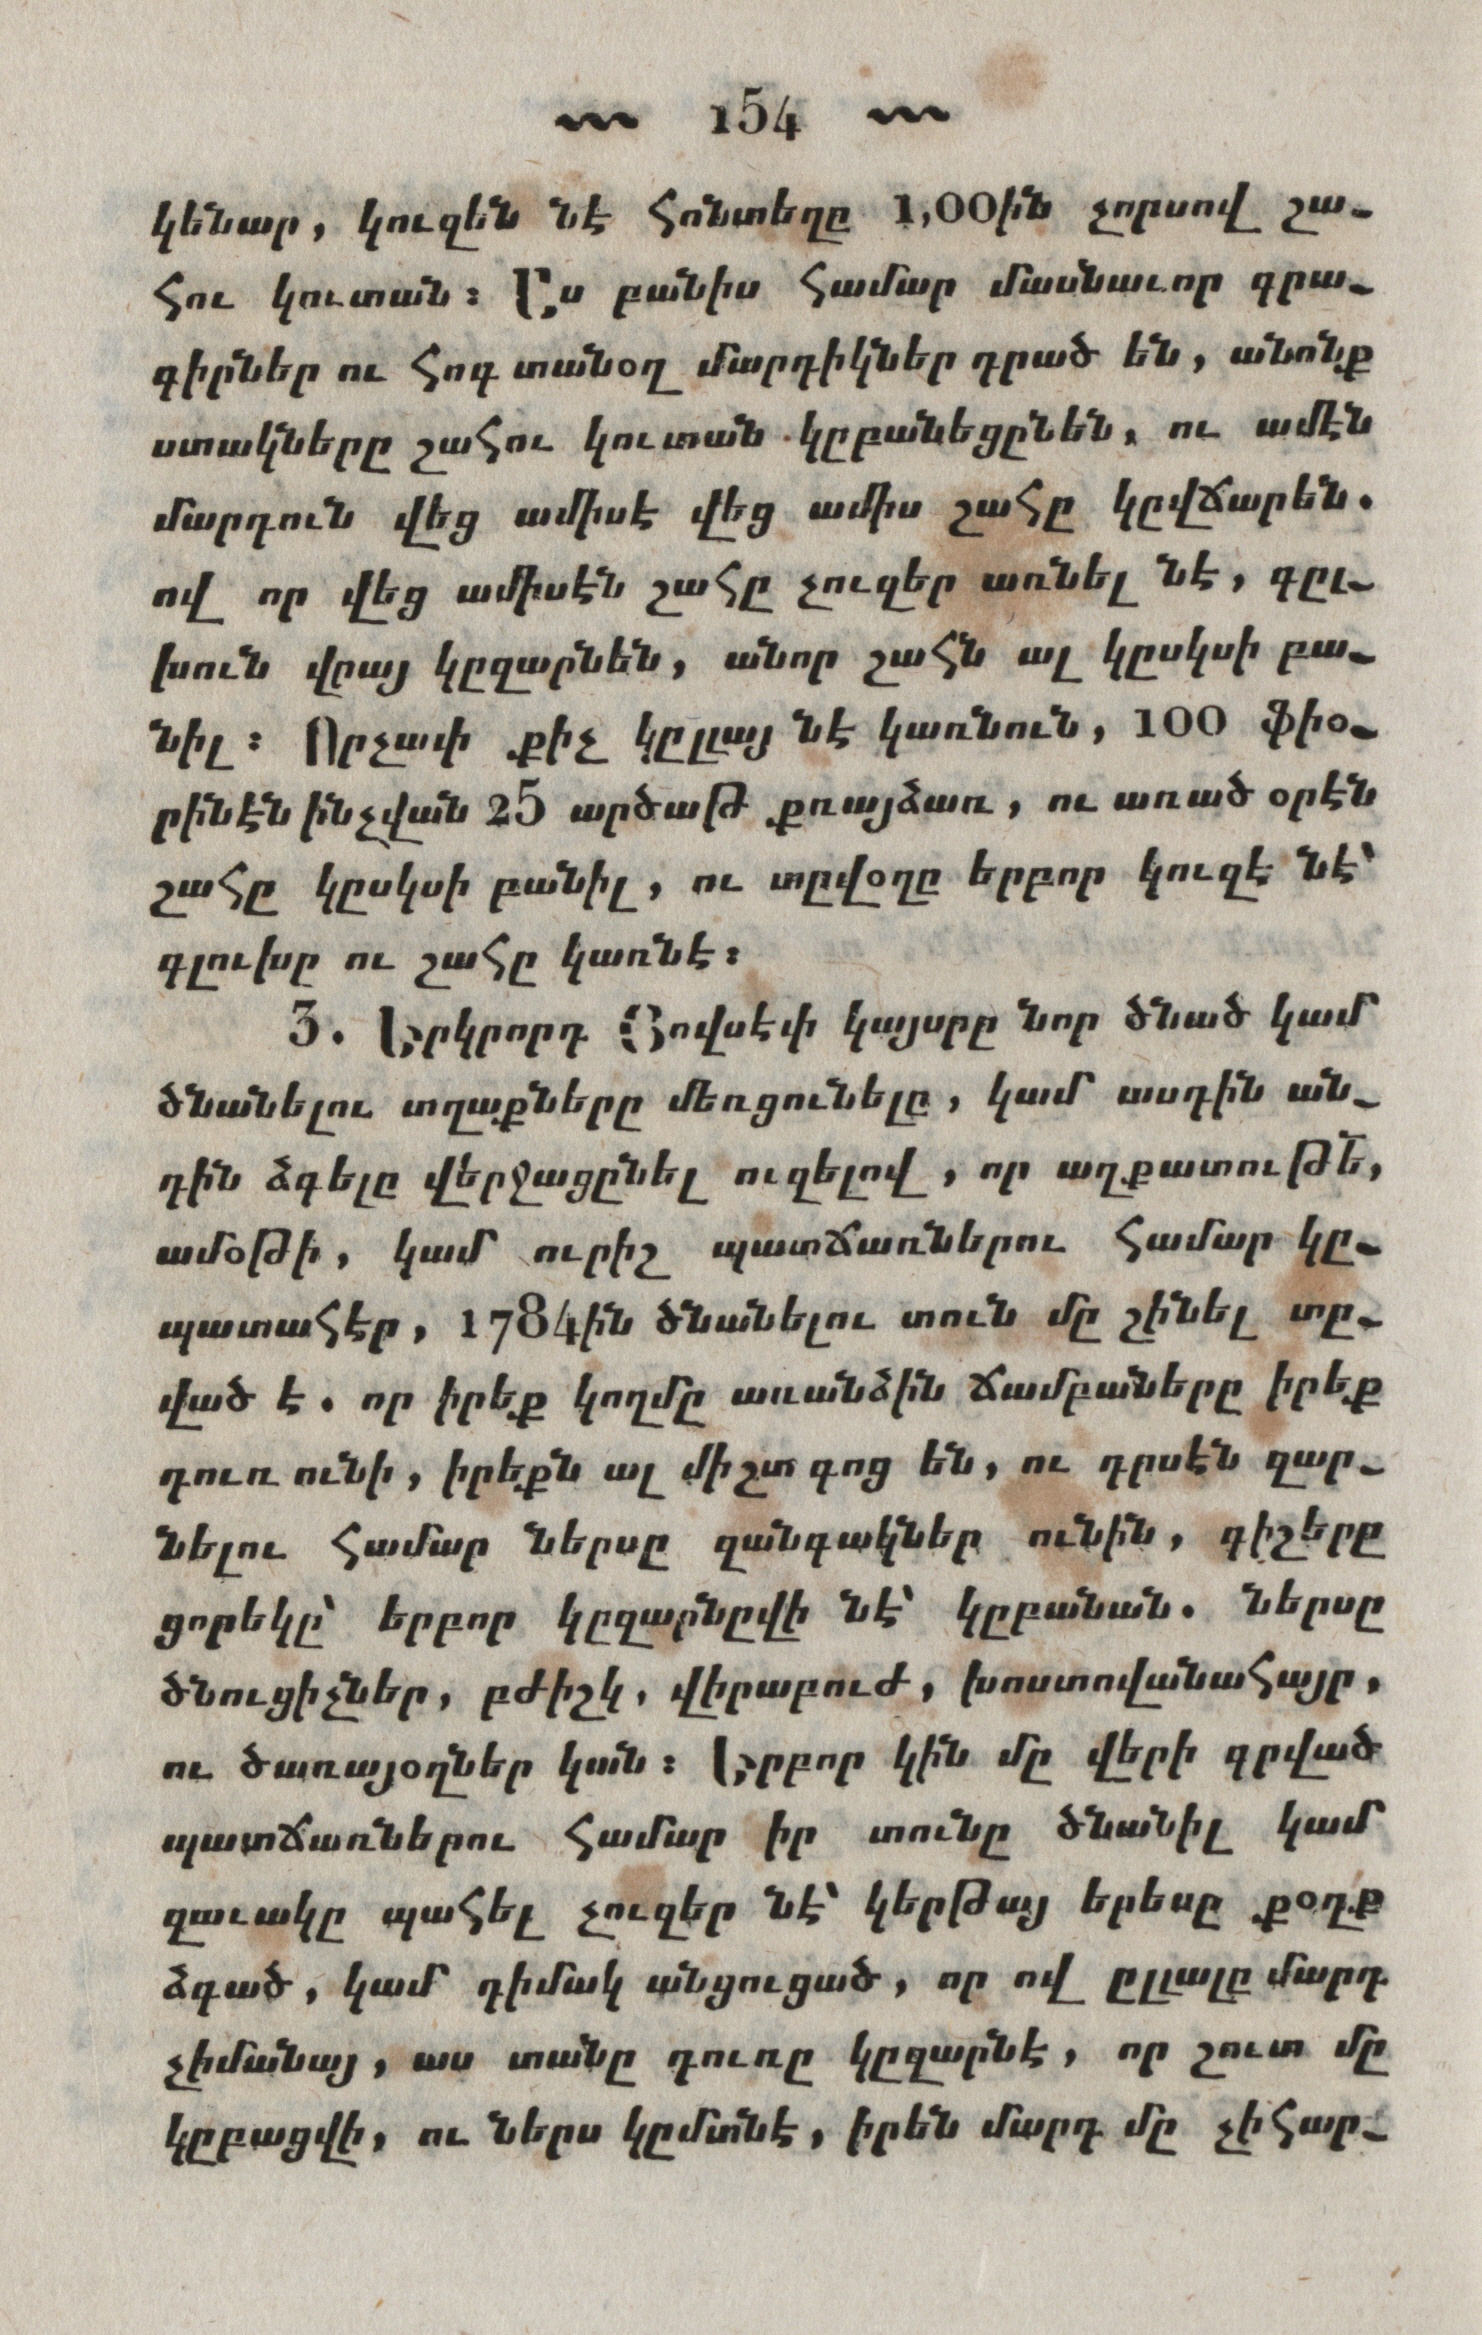 154
կենար, կուզեն նէ հոնտեղը 1,00ին չորսով շա-
հու կուտան։ Ըս բանիս համար մասնաւոր գրա-
գիրներ ու հոգ տանօղ մարդիկներ դրած են, անոնք
ստակները շահու կուտան կըբանեցընեն, ու ամէն
մարդուն վեց ամիսէ վեց ամիս շահը կըվճարեն.
ով որ վեց ամիսէն շահը չուզեր առնել նէ, գըլ-
խուն վրայ կըզարնեն, անոր շահն ալ կըսկսի բա-
նիլ։ Որչափ քիչ կըլլայ նէ կառնուն, 100 ֆիօ-
րինէն ինչվան 25 արծաթ քռայձառ, ու առած օրէն
շահը կըսկսի բանիլ, ու տըվօղը երբոր կուզէ նէ՝
գլուխը ու շահը կառնէ։
3. Երկրորդ Յովսէփ կայսրը նոր ծնած կամ
ծնանելու տղաքները մեռցունելը, կամ ասդին ան-
դին ձգելը վերջացընել ուզելով, որ աղքատութե՛,
ամօթի, կամ ուրիշ պատճառներու համար կը-
պատահէր, 1784ին ծնանելու տուն մը շինել տը-
ված է. որ իրեք կողմը առանձին ճամբաները իրեք
դուռ ունի, իրեքն ալ միշտ գոց են, ու դրսէն զար-
նելու համար ներսը զանգակներ ունին, գիշերը
ցորեկը՝ երբոր կըզարնըվի նէ՝ կըբանան. ներսը
ծնուցիչներ, բժիշկ, վիրաբուժ, խոստովանահայր,
ու ծառայօղներ կան։ Երբոր կին մը վերի գրված
պատճառներու համար իր տունը ծնանիլ կամ
զաւակը պահել չուզեր նէ՝ կերթայ երեսը քօղք
ձգած, կամ դիմակ անցուցած, որ ով ըլլալը մարդ
չիմանայ, աս տանը դուռը կըզարնէ, որ շուտ մը
կըբացվի, ու ներս կըմտնէ, իրեն մարդ մը չիհար-